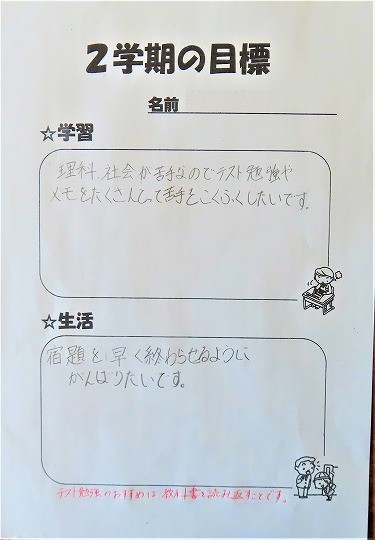 ２学期の目標
名前
☆学習
理科、社会が苦手なのでテスト勉強や
メモをたくさんとって苦手をこくふくしたいです。
☆生活
宿題を早く終わらせるように
がんばりたいです。
テスト勉強のおすすめは教科書を読み返すことです。